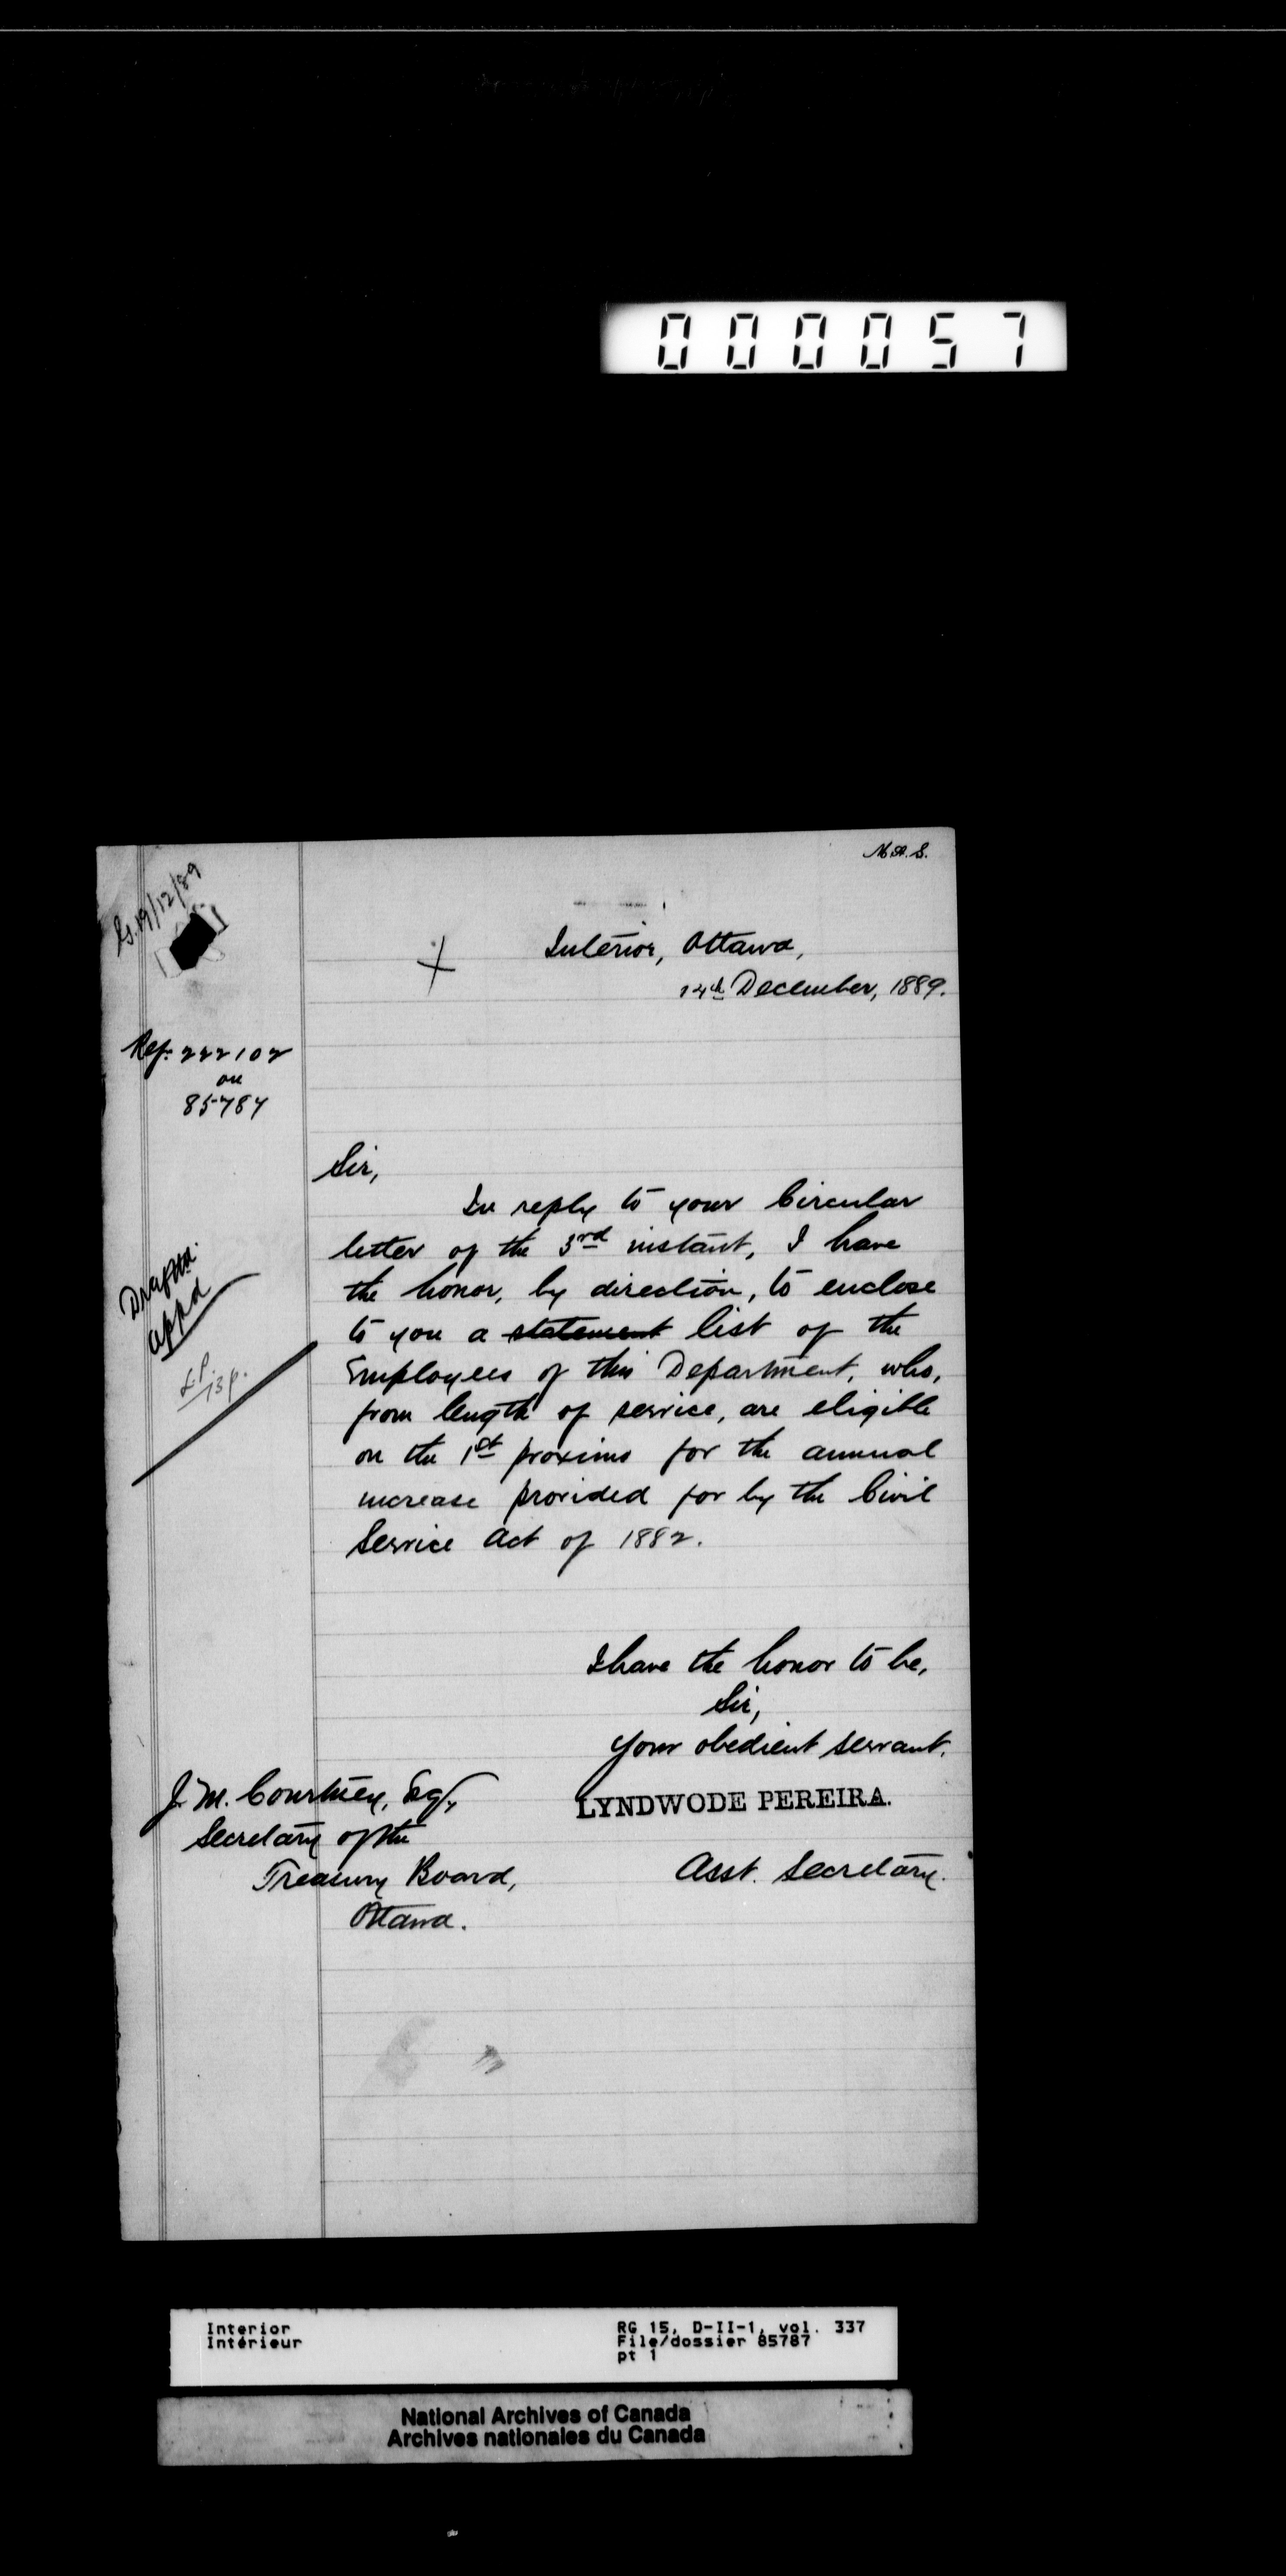 000057
Is. 19/12/89
Interior, Ottawa,
14th December, 1889.
Ref: 222102
on
85787
Sir,
In reply to your Circular
letter of the 3rd instant, I have
the honor, by direction, to enclose
to you a statement list of the
Employees of this Department, who,
from length of service, are eligible
on the 1st proximo for the annual
increase provided for by the Civil
Service Act of 1882.
appd
L.P.
I have the honor to be,
Sir,
Your obedient servant,
LYNDWODE PEREIRA.
Asst. Secretary.
J. M. Courtney, Esq.,
Secretary of the
Treasury Board,
Ottawa.
Interior
Intérieur
RG 15, D-II-1, vol. 337
File/dossier 85787
pt 1
National Archives of Canada
Archives nationales du Canada